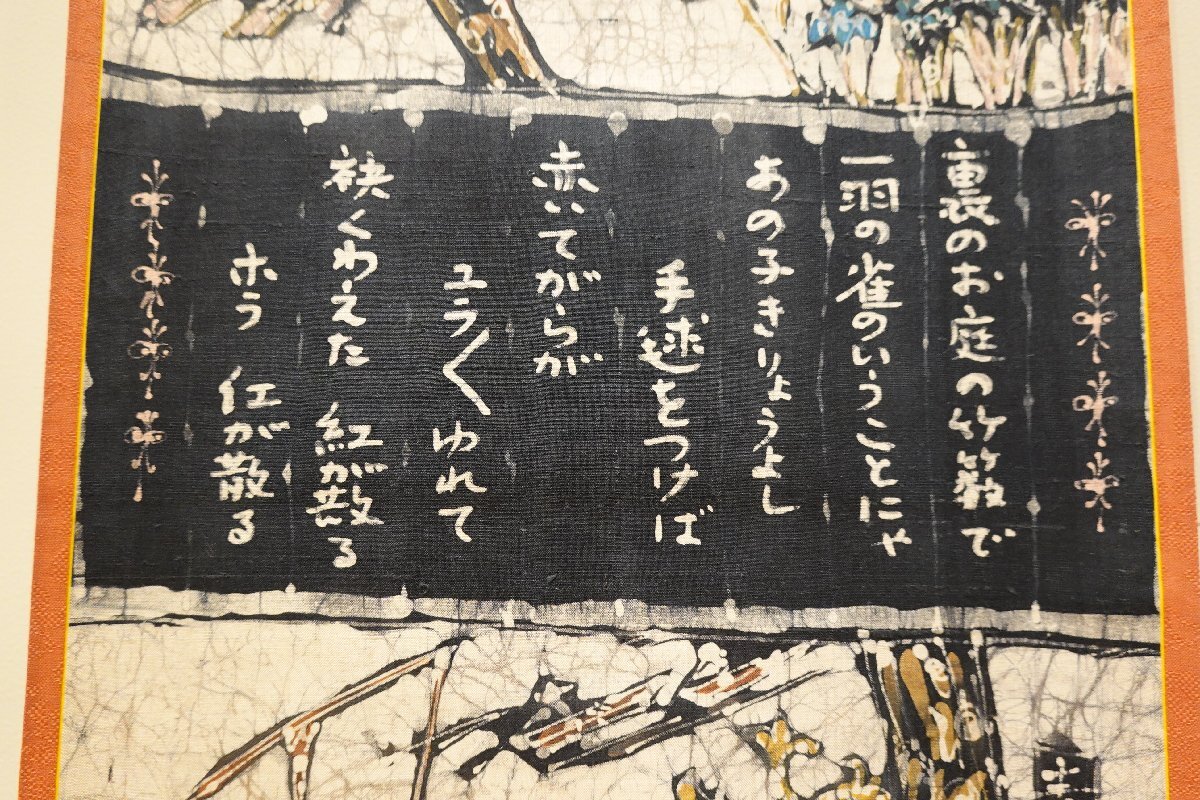 裏のお庭の竹籔で
一羽の雀のいうことにゃ
あの子きりょうよし
手毬をつけば
赤いてがらが
ユラ〱ゆれて
袂くわえた 紅が散る
ホラ 紅が散る